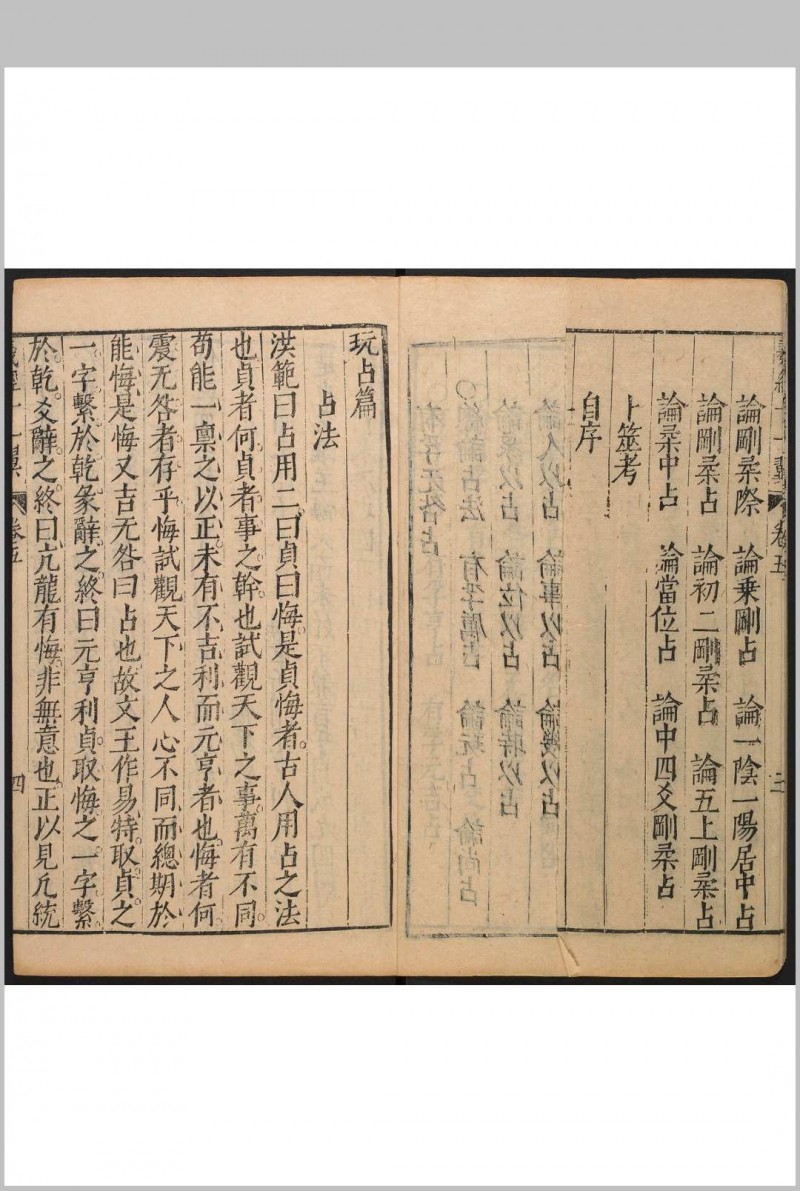 十一翼 卷五 二
論剛柔際 論乘剛占 論一陰一陽居中占
論剛柔占 論初二剛柔占 論五上剛柔占
論柔中占 論當位占 論中四爻剛柔占
卜筮考
自序
玩占篇
占法
洪範曰占用二曰貞曰悔是貞悔者古人用占之法
也貞者何貞者事之幹也試觀天下之事萬有不同
苟能一禀之以正未有不吉利而元亨者也悔者何
震无咎者存乎悔試觀天下之人心不同而總期於
能悔是悔又吉无咎曰占也故文王作易特取貞之
一字繫於乾彖辭之終曰元亨利貞取悔之一字繫
於乾爻辭之終曰亢龍有悔非無意也正以見凡統
經十一翼 卷五 四